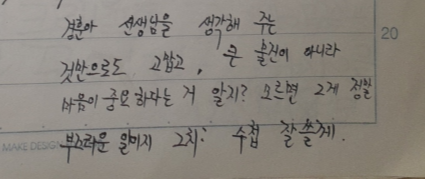 경훈아 선생님을 생각해 주는
것만으로도 고맙고, 큰 물건이 아니라
마음이 중요하다는 거 알지? 모르면 그게 정말
부끄러운 일이지 그치? 수첩 잘 쓸게.
20
MAKE DESIGN